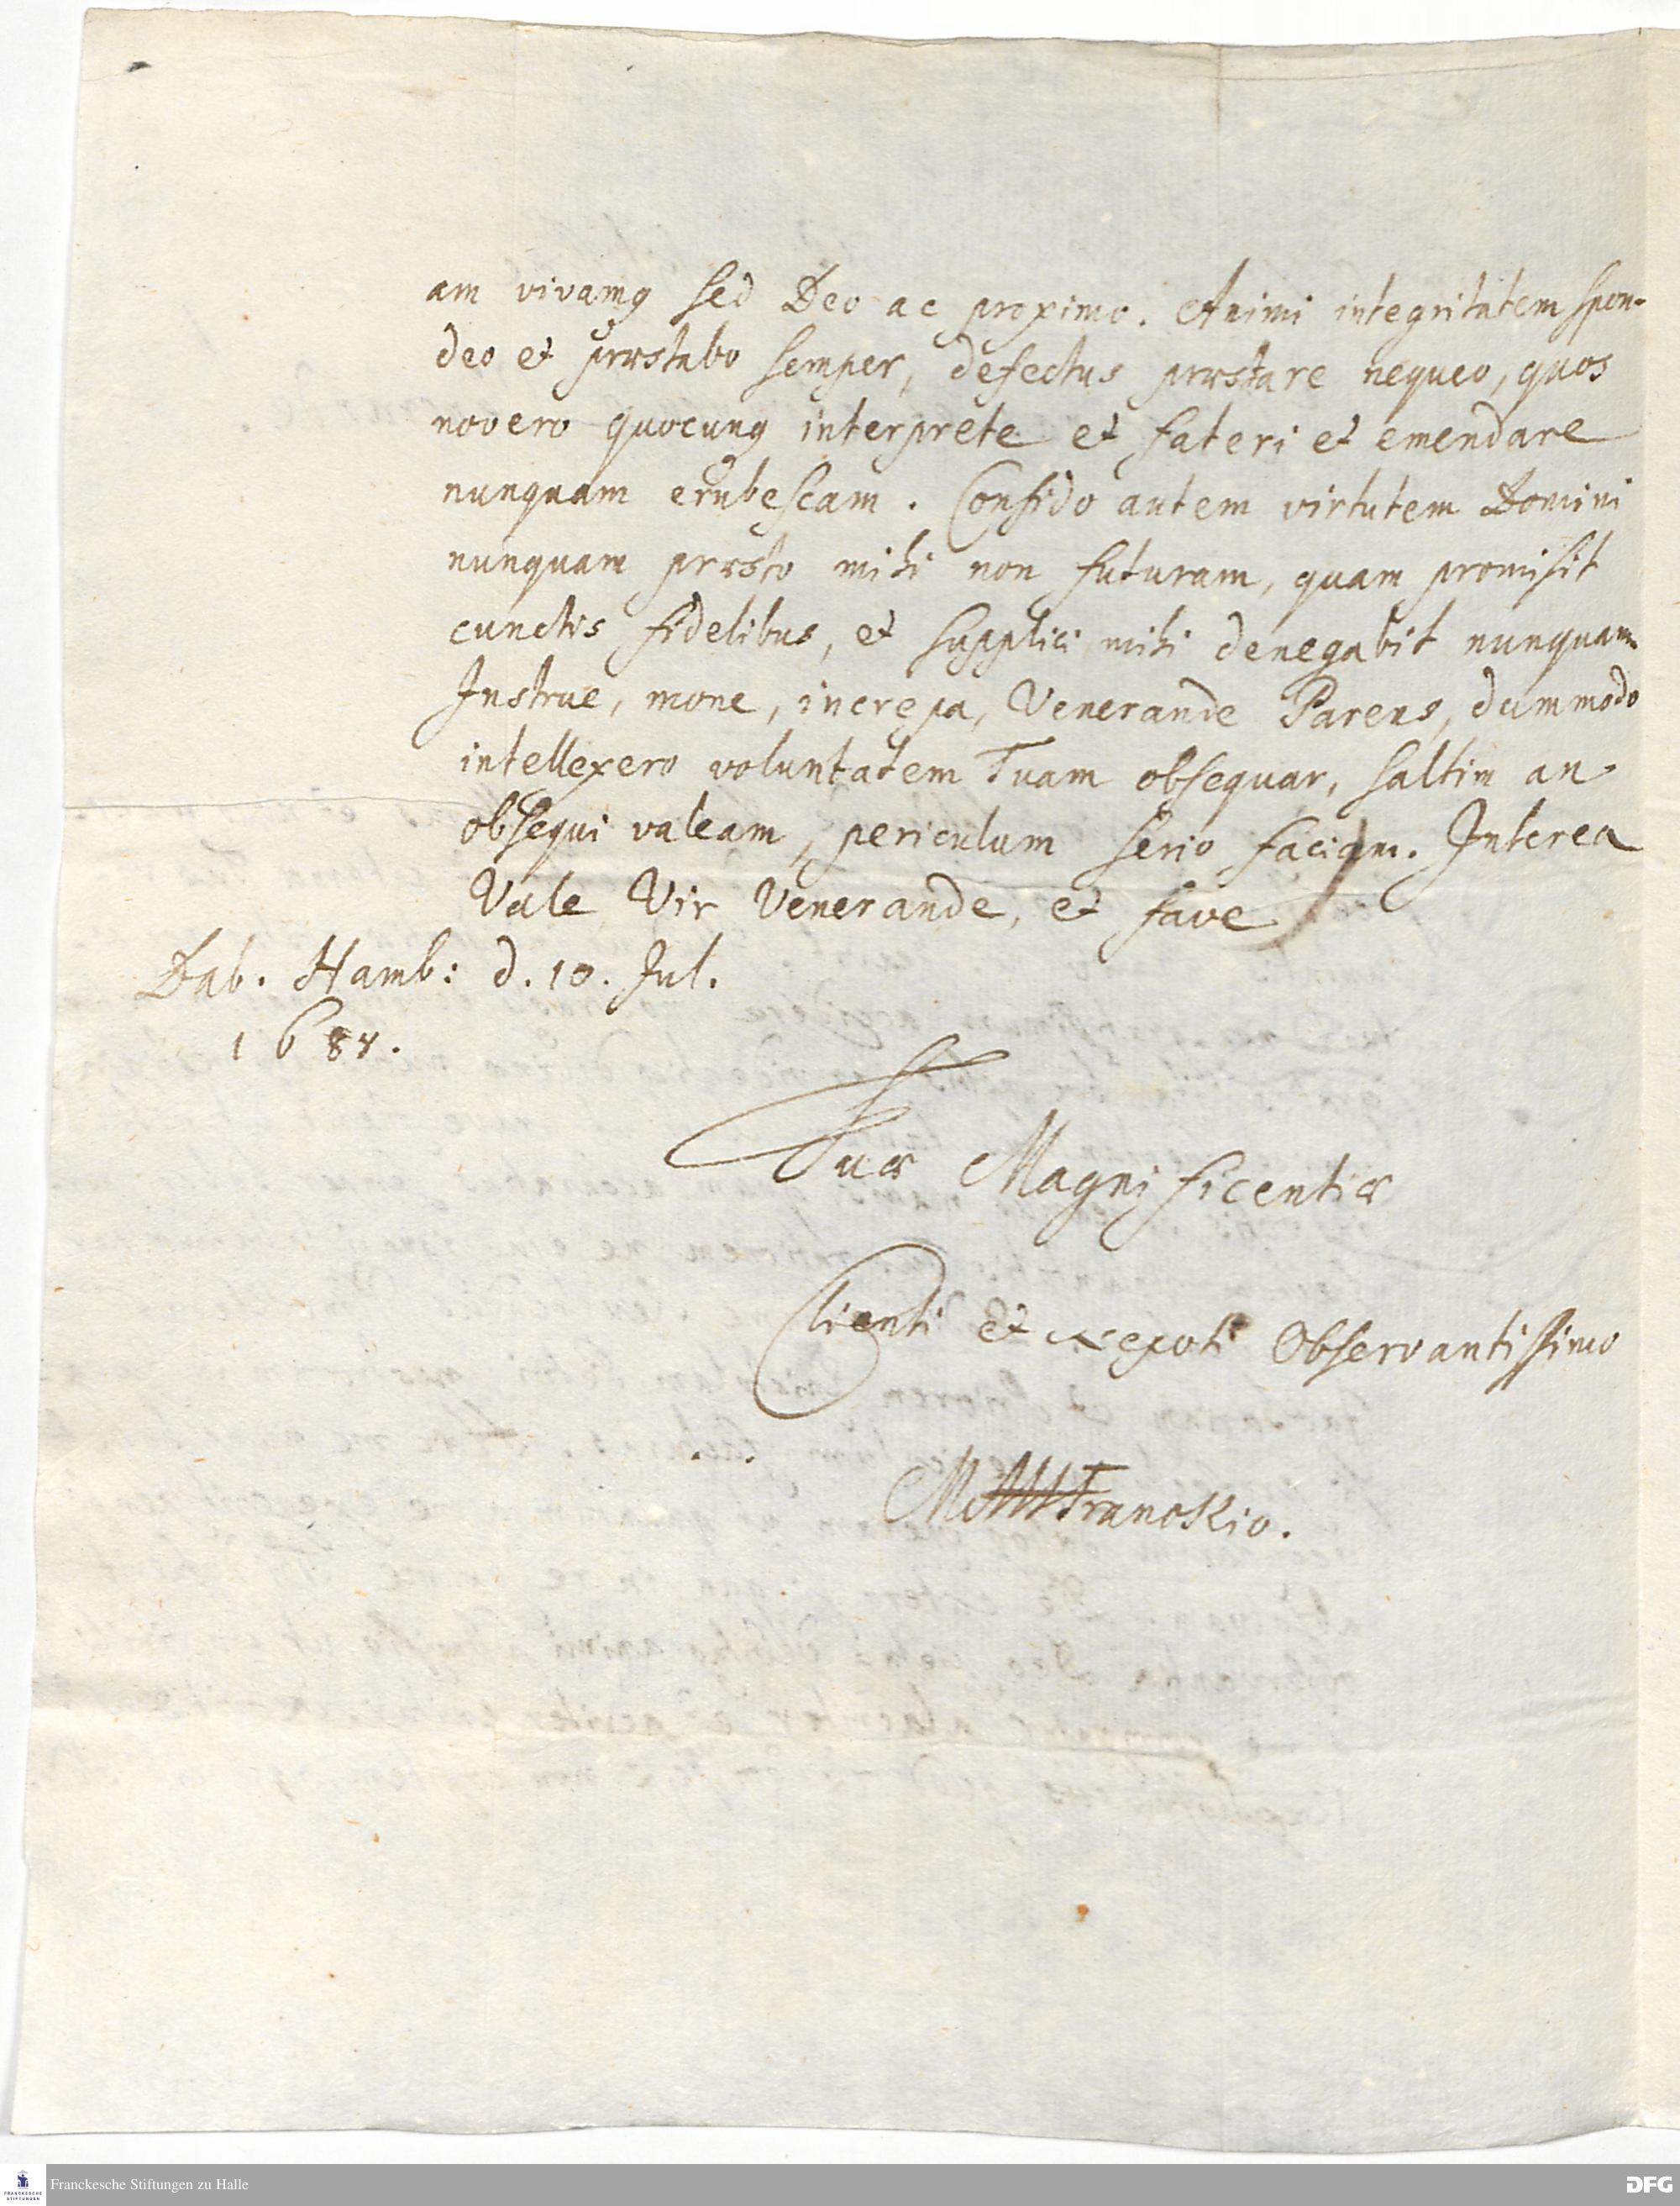 am vivamq sed Deo ac proximo. Animi integritatem spon-
deo et præstabo semper, defectus præstare nequeo, quos
novero quocunq interprete et fateri et emendare
nunquam erubescam. Confido autem virtutem Domini
nunquam præsto mihi non futuram, quam promisit
cunctis fidelibus, et supplici mihi denegabit nunquam
Instrue, mone, increpa, Venerande Parens, dummodo
intellexero voluntatem Tuam obsequar, saltim an
obsequi valeam, periculum serio faciam. Interea
Vale Vir Venerande, et fave
Dab. Hamb: d. 10. Jul.
1684.
Tuæ Magnificentiæ
Clienti et Nepoti Observantissimo
Franckio.
Franckesche Stiftungen zu Halle
FRANCKESCHE
STIFTUNGEN
DFG